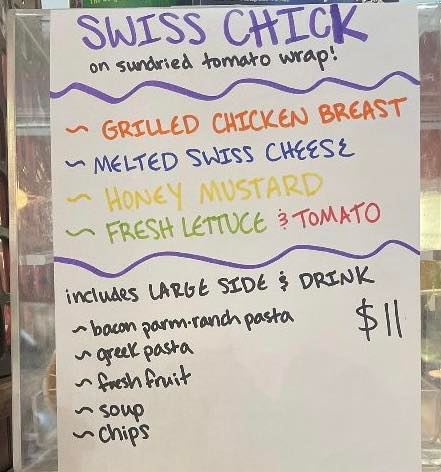 SWISS CHICK
on sundried tomato wrap!
~ GRILLED CHICKEN BREAST
~ MELTED SWISS CHEESE
~ HONEY MUSTARD
~ FRESH LETTUCE & TOMATO
includes LARGE SIDE & DRINK
~ bacon parm-ranch pasta $11
~ greek pasta
~ fresh fruit
~ soup
~ chips